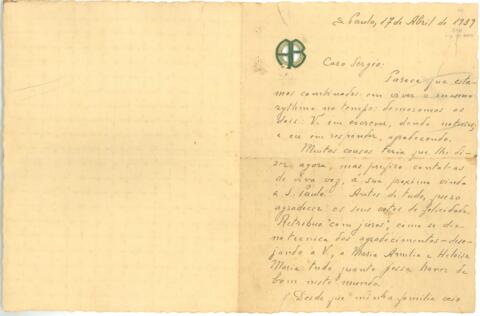 S. Paulo, 17 de Abril de 1939
AB
Caro Sergio:
Parece que esta-
mos combinados em viver o mesmo
rythmo no tempo: demoramos os
dois: V. em escrever, dando noticias,
e eu em responder, agradecendo.
Muitas cousas teria que lhe di-
zer agora, mas prefiro contal-as
de viva voz, á sua proxima vinda
a S. Paulo. Antes de tudo, quero
agradecer os seus votos de felicidade.
Retribuo "com juros", como se diz
na technica dos agradecimentos - dese-
jando a V., a Maria Amelia e Heloisa
Maria tudo quanto possa haver de
bom neste mundo.
Desde que minha familia veio